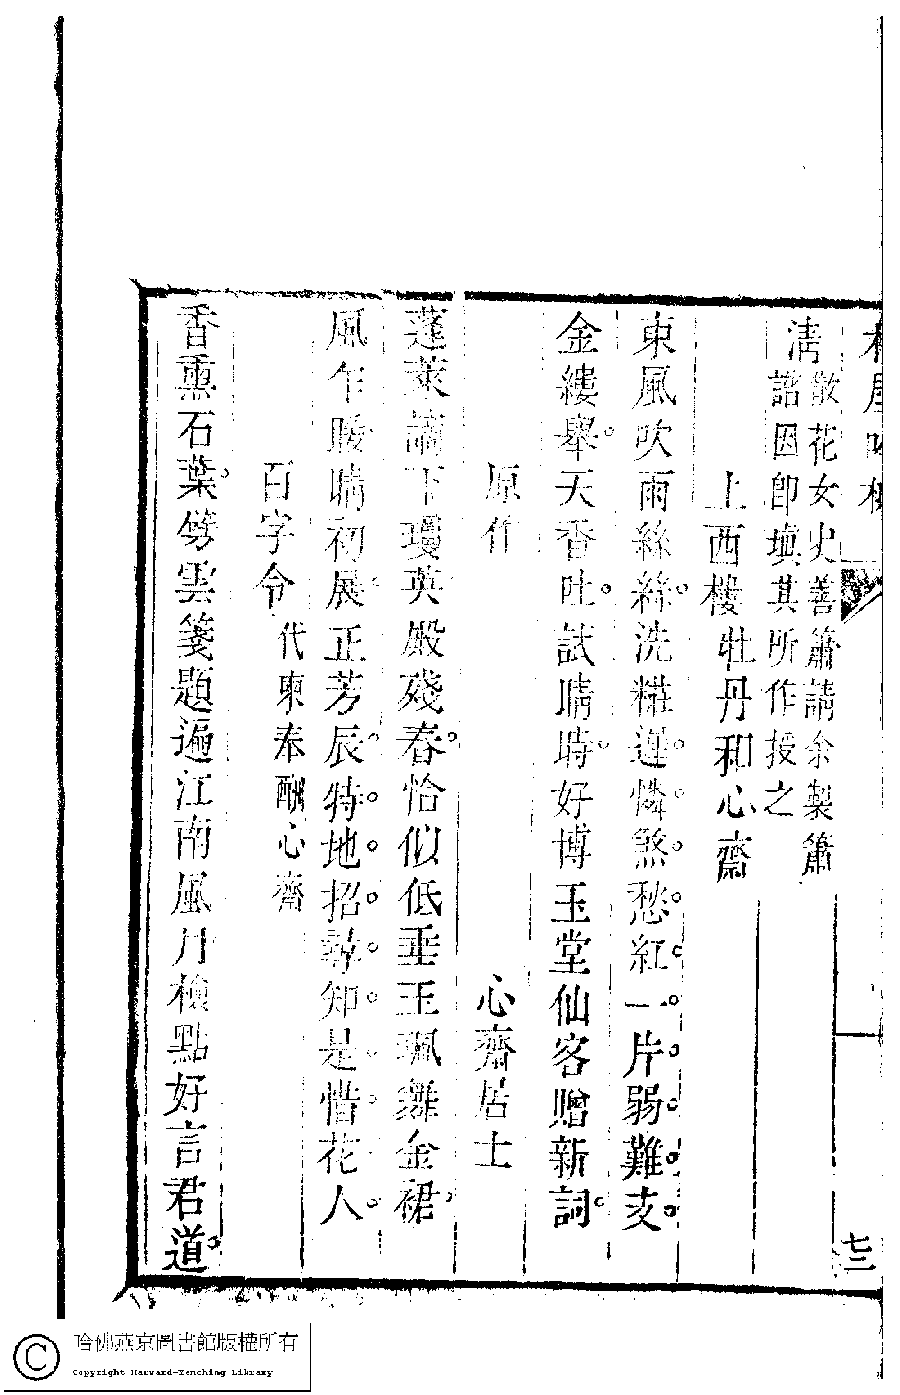 清
散花女史善簫請余製簫
譜因卽塡其所作授之
上西樓牡丹和心齋
東風吹雨絲絲洗糚遲憐煞愁紅一片弱難支
金縷舉天香吐試晴時好博玉堂仙客贈新詞
原作
心齋居士
蓬萊謫下瓊英殿殘春恰似低垂玉珮舞金裙
風乍暖晴初展正芳辰特地招尋知是惜花人
百字令代柬奉酬心齋
香熏石葉劈雲箋題遍江南風月檢點好言君道
七三
哈佛燕京圖書館版權所有
Copyright Harvard-Yenching Library